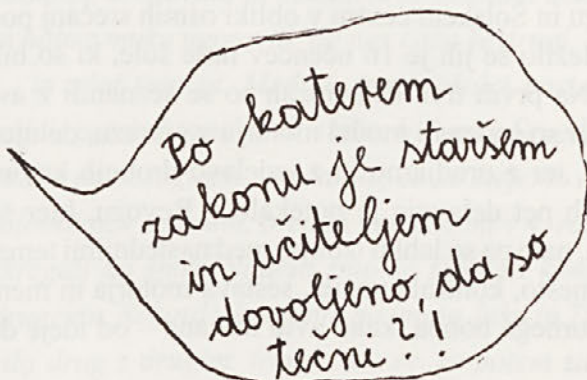 Po katerem
zakonu je staršem
in učiteljem
dovoljeno, da so
tečni?!